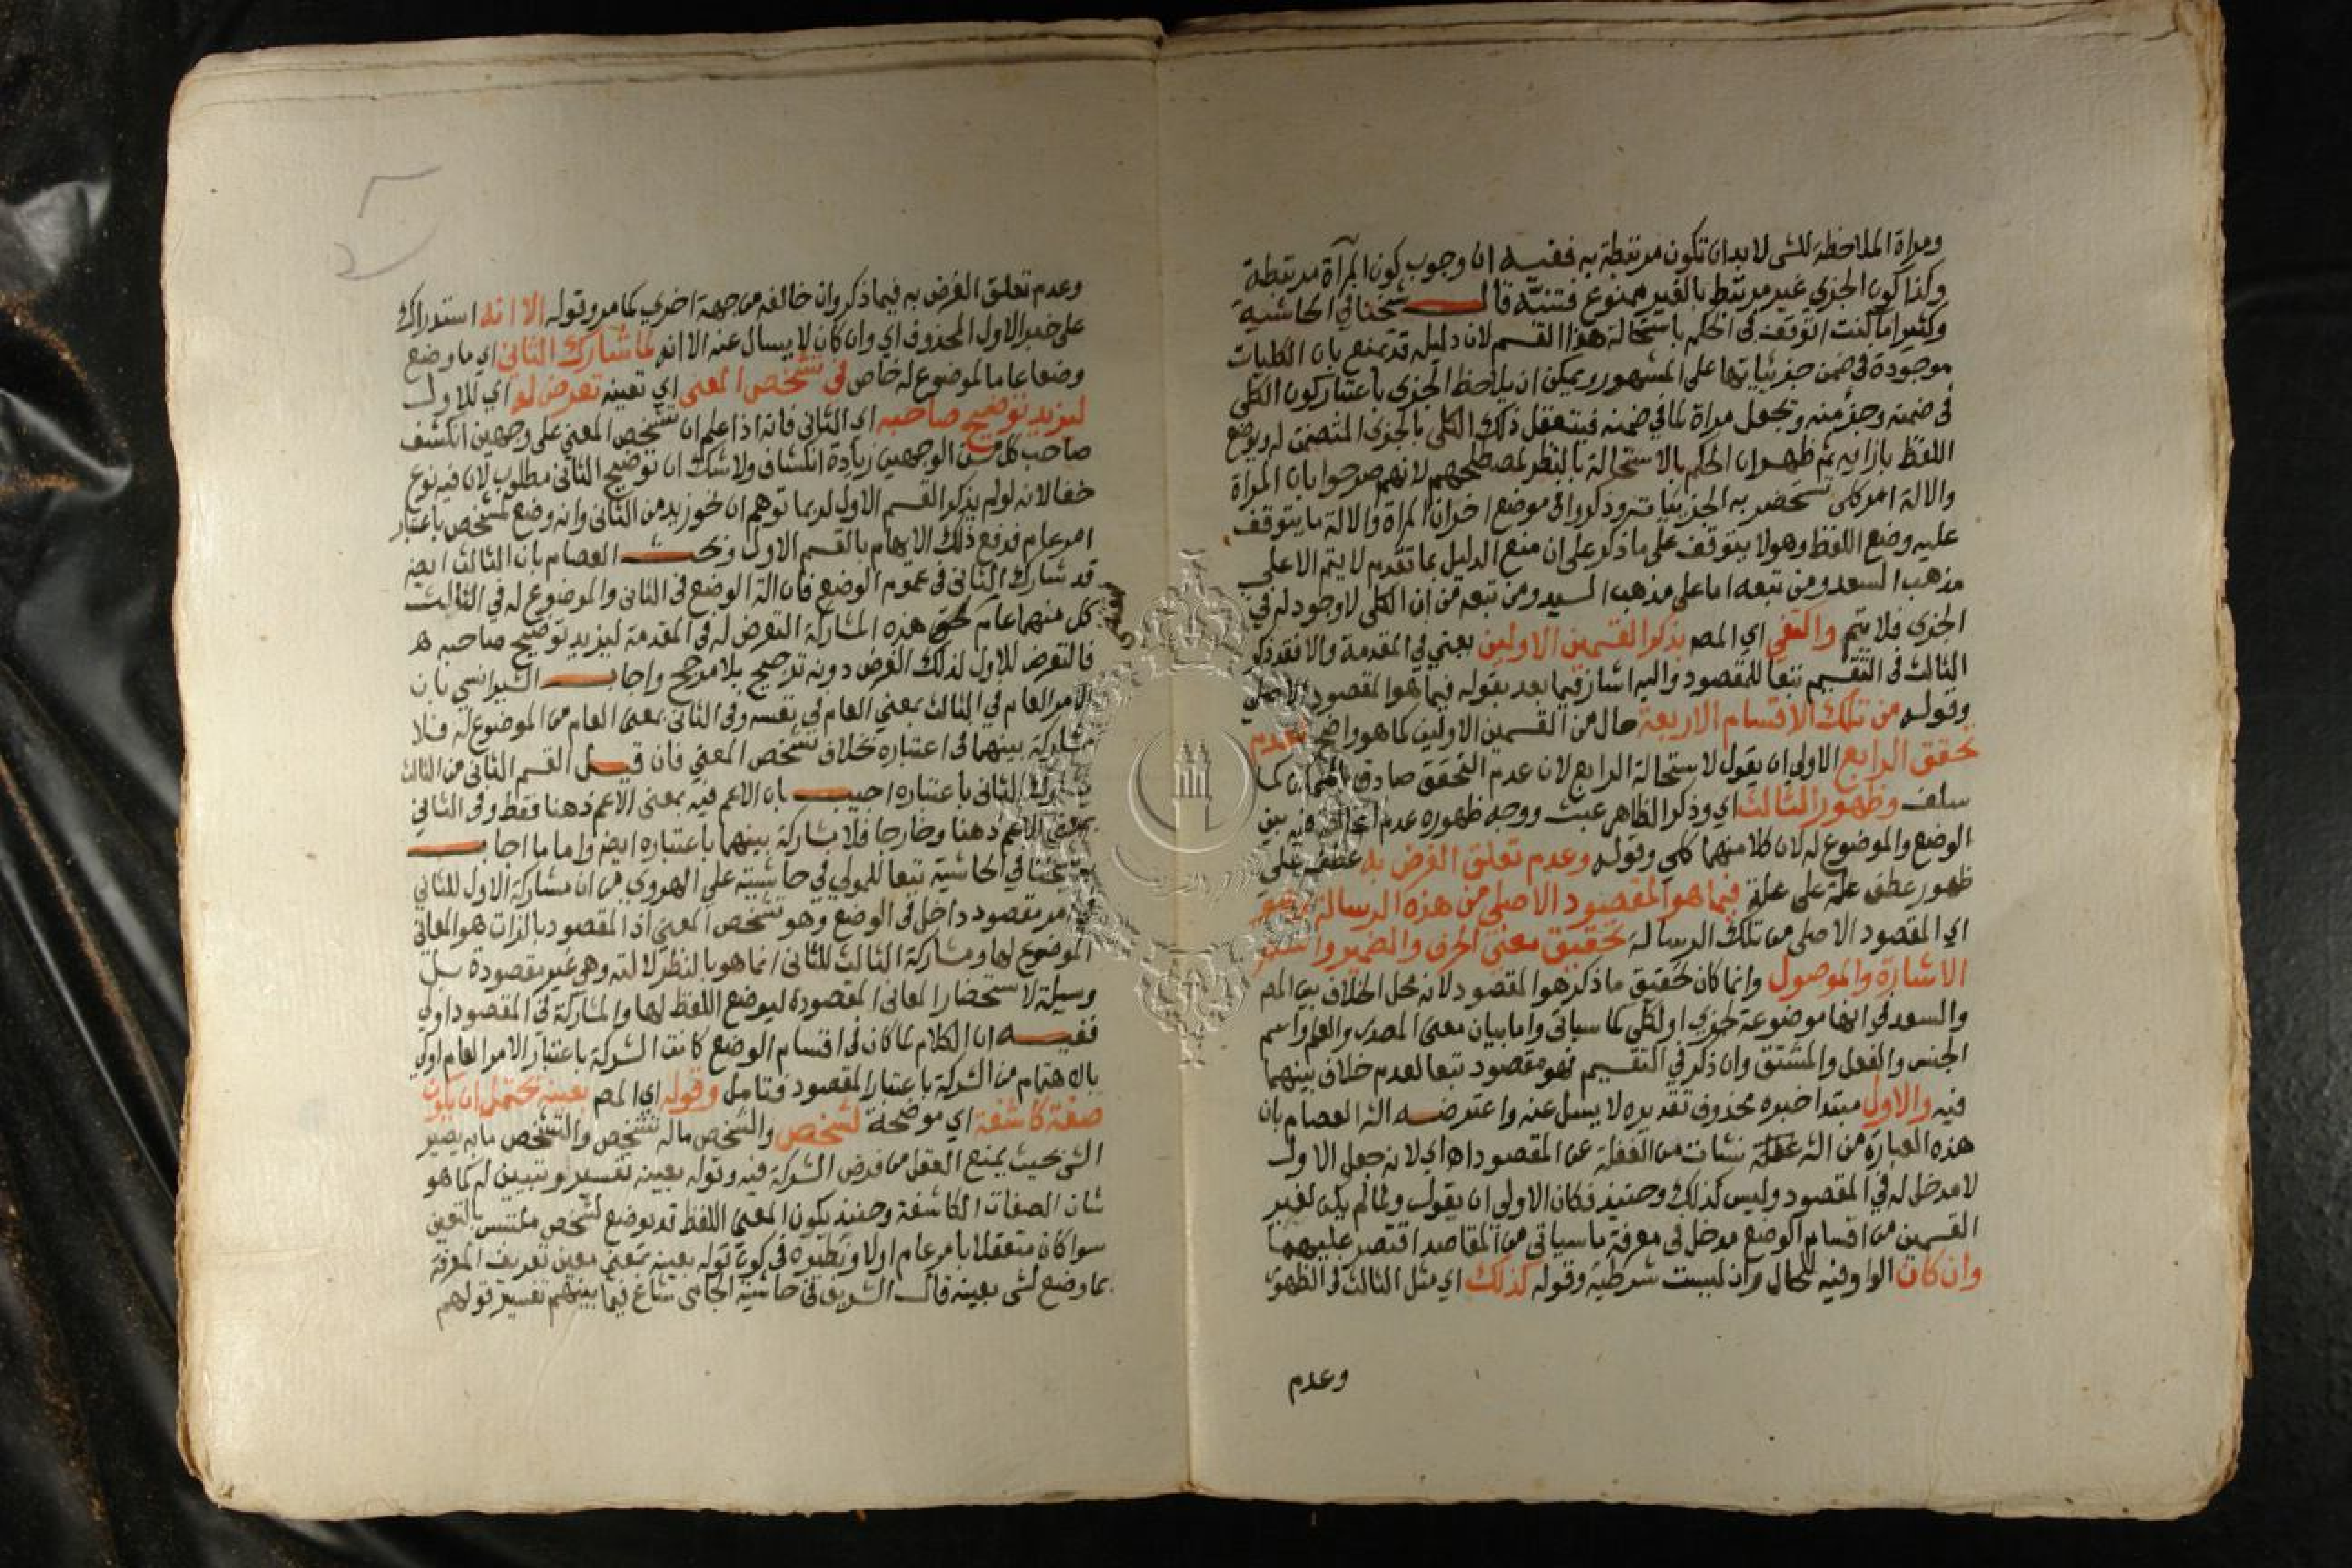 ومراة الملاحظة للشى لابد ان تكون مرتبطة به ففيه ان وجوب كون المرآة مرتبطة
وكذا كون الجزي غير مرتبط بالغير ممنوع فتنبه قال شيخنا في الحاشية
وكثيرا ما كنت اتوقف في الحكم باستحالة هذا القسم لان دليله قد يمنع بان الكليات
موجودة في ضمن جزئياتها على المشهور ويمكن ان يلاحظ الجزى باعتبار كون الكلى
في ضمنه وجز منه وتجعل مراة لما في ضمنه فيتعقل ذلك الكلى بالجزى المتضمن له ويوضع
اللفظ بازائه ثم ظهر ان الحكم بالاستحالة بالنظر لمصطلحهم لانهم صرحوا بان المراة
والالة امر كلى تستحضر به الجزئيات وذكروا في موضع اخر ان المراة والالة ما يتوقف
عليه وضع اللفظ وهو لا يتوقف على ما ذكر على ان منع الدليل بما تقدم لا يتم الا على
مذهب السعد ومن تبعه اما على مذهب السيد ومن تبعه من ان الكلى لا وجود له في
الجزى فلا يتم واكتفي اي المصه بذكر القسمين الاولين يعني في المقدمة والا فقد ذكر
الثالث في التقسيم تبعا للمقصود واليه اشار فيما بعد بقوله فيما هو المقصود الاصلي
وقوله من تلك الاقسام الاربعة حال من القسمين الاولين كما هو واضح لعدم
تحقق الرابع الاولى ان يقول لاستحالة الرابع لان عدم التحقق صادق كما
سلف وظهور الثالث اي وذكر الظاهر عبث ووجه ظهوره عدم فيه بين
الوضع والموضوع له لان كلا منهما كلي وقوله وعدم تعلق الغرض به عطف على
ظهور عطف علة على علة فيما هو المقصود الاصلي من هذه الرسالة وهو
اي المقصود الاصلى من تلك الرسالة تحقيق معنى الحرف والضمير واسم
الاشارة والموصول وانما كان تحقيق ما ذكر هو المقصود لانه محل الخلاف بين المصه
والسعد في انها موضوعة لجزى او لكلى كما سياتى واما بيان معنى المصدر والعلم واسم
الجنس والفعل والمشتق وان ذكر في التقسيم فهو مقصود تبعا لعدم خلاف بينهما
فيه والاول مبتدا خبره محذوف تقديره لا يسئل عنه واعترضه العصام بان
هذه العبارة من نشات من الغفلة عن المقصود اه اي لانه جعل الاول
لا مدخل له في المقصود وليس كذلك وحينئذ فكان الاولى ان يقول ولما لم يكن لغير
القسمين من اقسام الوضع مدخل في معرفة ما سياتي من المقاصد اقتصر عليهما
وان كان الواو فيه للحال وان ليست شرطية وقوله كذلك اي مثل الثالث في الظهور
وعدم
وعدم تعلق الغرض به فيما ذكر وان خالفه من جهة اخرى كما مر وقوله الا انه استدراك
على خبر الاول المحذوف اي وان كان لا يسال عنه الا انه لما شارك الثاني اي ما وضع
وضعا عاما لموضوع له خاص في تشخص المعنى اي تعينه تعرض له اي للاول
ليزيد توضيح صاحبه اي الثاني فانه اذا علم ان تشخص المعني على وجهين انكشف
صاحب كل من الوجهين زيادة انكشاف ولا شك ان توضيح الثاني مطلوب لان فيه نوع
خفا لانه لو لم يذكر القسم الاول لربما توهم ان نحو زيد من الثاني وانه وضع لمشخص باعتبار
امر عام فدفع ذلك الايهام بالقسم الاول وبحث العصام بان الثالث ايضه
قد شارك الثاني في عموم الوضع فان الة الوضع في الثاني والموضوع له في الثالث
كل منهما عام هذه المشاركة التعرض له في المقدمة ليزيد توضيح صاحبه
فالتعرض للاول لذلك الغرض دونه ترجيح بلا مرجح واجاب الشيرانسي بان
الامر العام في الثالث بمعني العام في نفسه وفي الثاني بمعنى العام من الموضوع له فلا
مشاركة بينهما في اعتباره بخلاف تشخص المعني فان قيل القسم الثاني من الثالث
شارك الثاني باعتباره اجيب بان الاعم فيه بمعنى الاعم ذهنا فقط وفي الثاني
بمعنى الاعم ذهنا وخارجا فلا مشاركة بينهما باعتباره ايضه واما ما اجاب
شيخنا في الحاشية تبعا للمولي في حاشيته علي الهروي من ان مشاركة الاول للثاني
في امر مقصود داخل في الوضع وهو تشخص المعني اذ المقصود بالذات هو المعاني
الموضوع لها ومشاركة الثالث للثاني انما هو بالنظر لالته وهي غير مقصودة بل
وسيلة لاستحضار المعاني المقصودة ليوضع اللفظ لها والمشاركة في المقصود اولي
ففيه ان الكلام لما كان في اقسام الوضع كانت الشركة باعتبار الامر العام اولي
بالاهتمام من الشركة باعتبار المقصود فتامل وقوله اي المصه بعينه يحتمل ان يكون
صفة كاشفة اي موضحة لشخص والشخص ماله تشخص والتشخص ما به يصير
الشى بحيث يمنع العقل من فرض الشركة فيه وقوله بعينه تفسير وتبيين له كما هو
شان الصفات الكاشفة وحينئذ يكون المعنى اللفظ قد يوضع لشخص ملتبس بالتعين
سوا كان متعقلا بامر عام اولا ونظيره في كون قوله بعينه بمعنى معين تعريف المعرفة
بما وضع لشى بعينه قال الشريف في حاشية الجامى شاع فيما بينهم تفسير قولهم